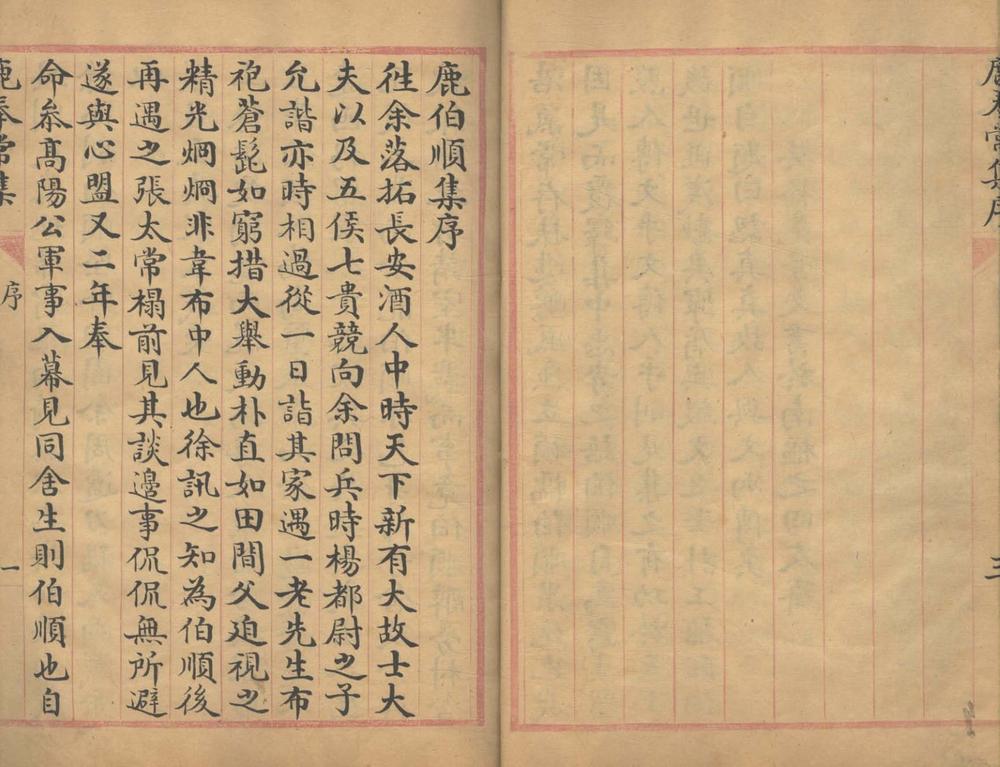 鹿奉常集序
三
鹿伯順集序
徃余落拓長安酒人中時天下新有大故士大
夫以及五侯七貴競向余問兵時楊都尉之子
允諧亦時相過從一日詣其家遇一老先生布
袍蒼髭如窮措大舉動朴直如田間父迫視之
精光烱烱非韋布中人也徐訊之知為伯順後
再遇之張太常榻前見其談邊事侃侃無所避
遂與心盟又二年奉
命叅髙陽公軍事入幕見同舍生則伯順也自
鹿奉常集
序
一